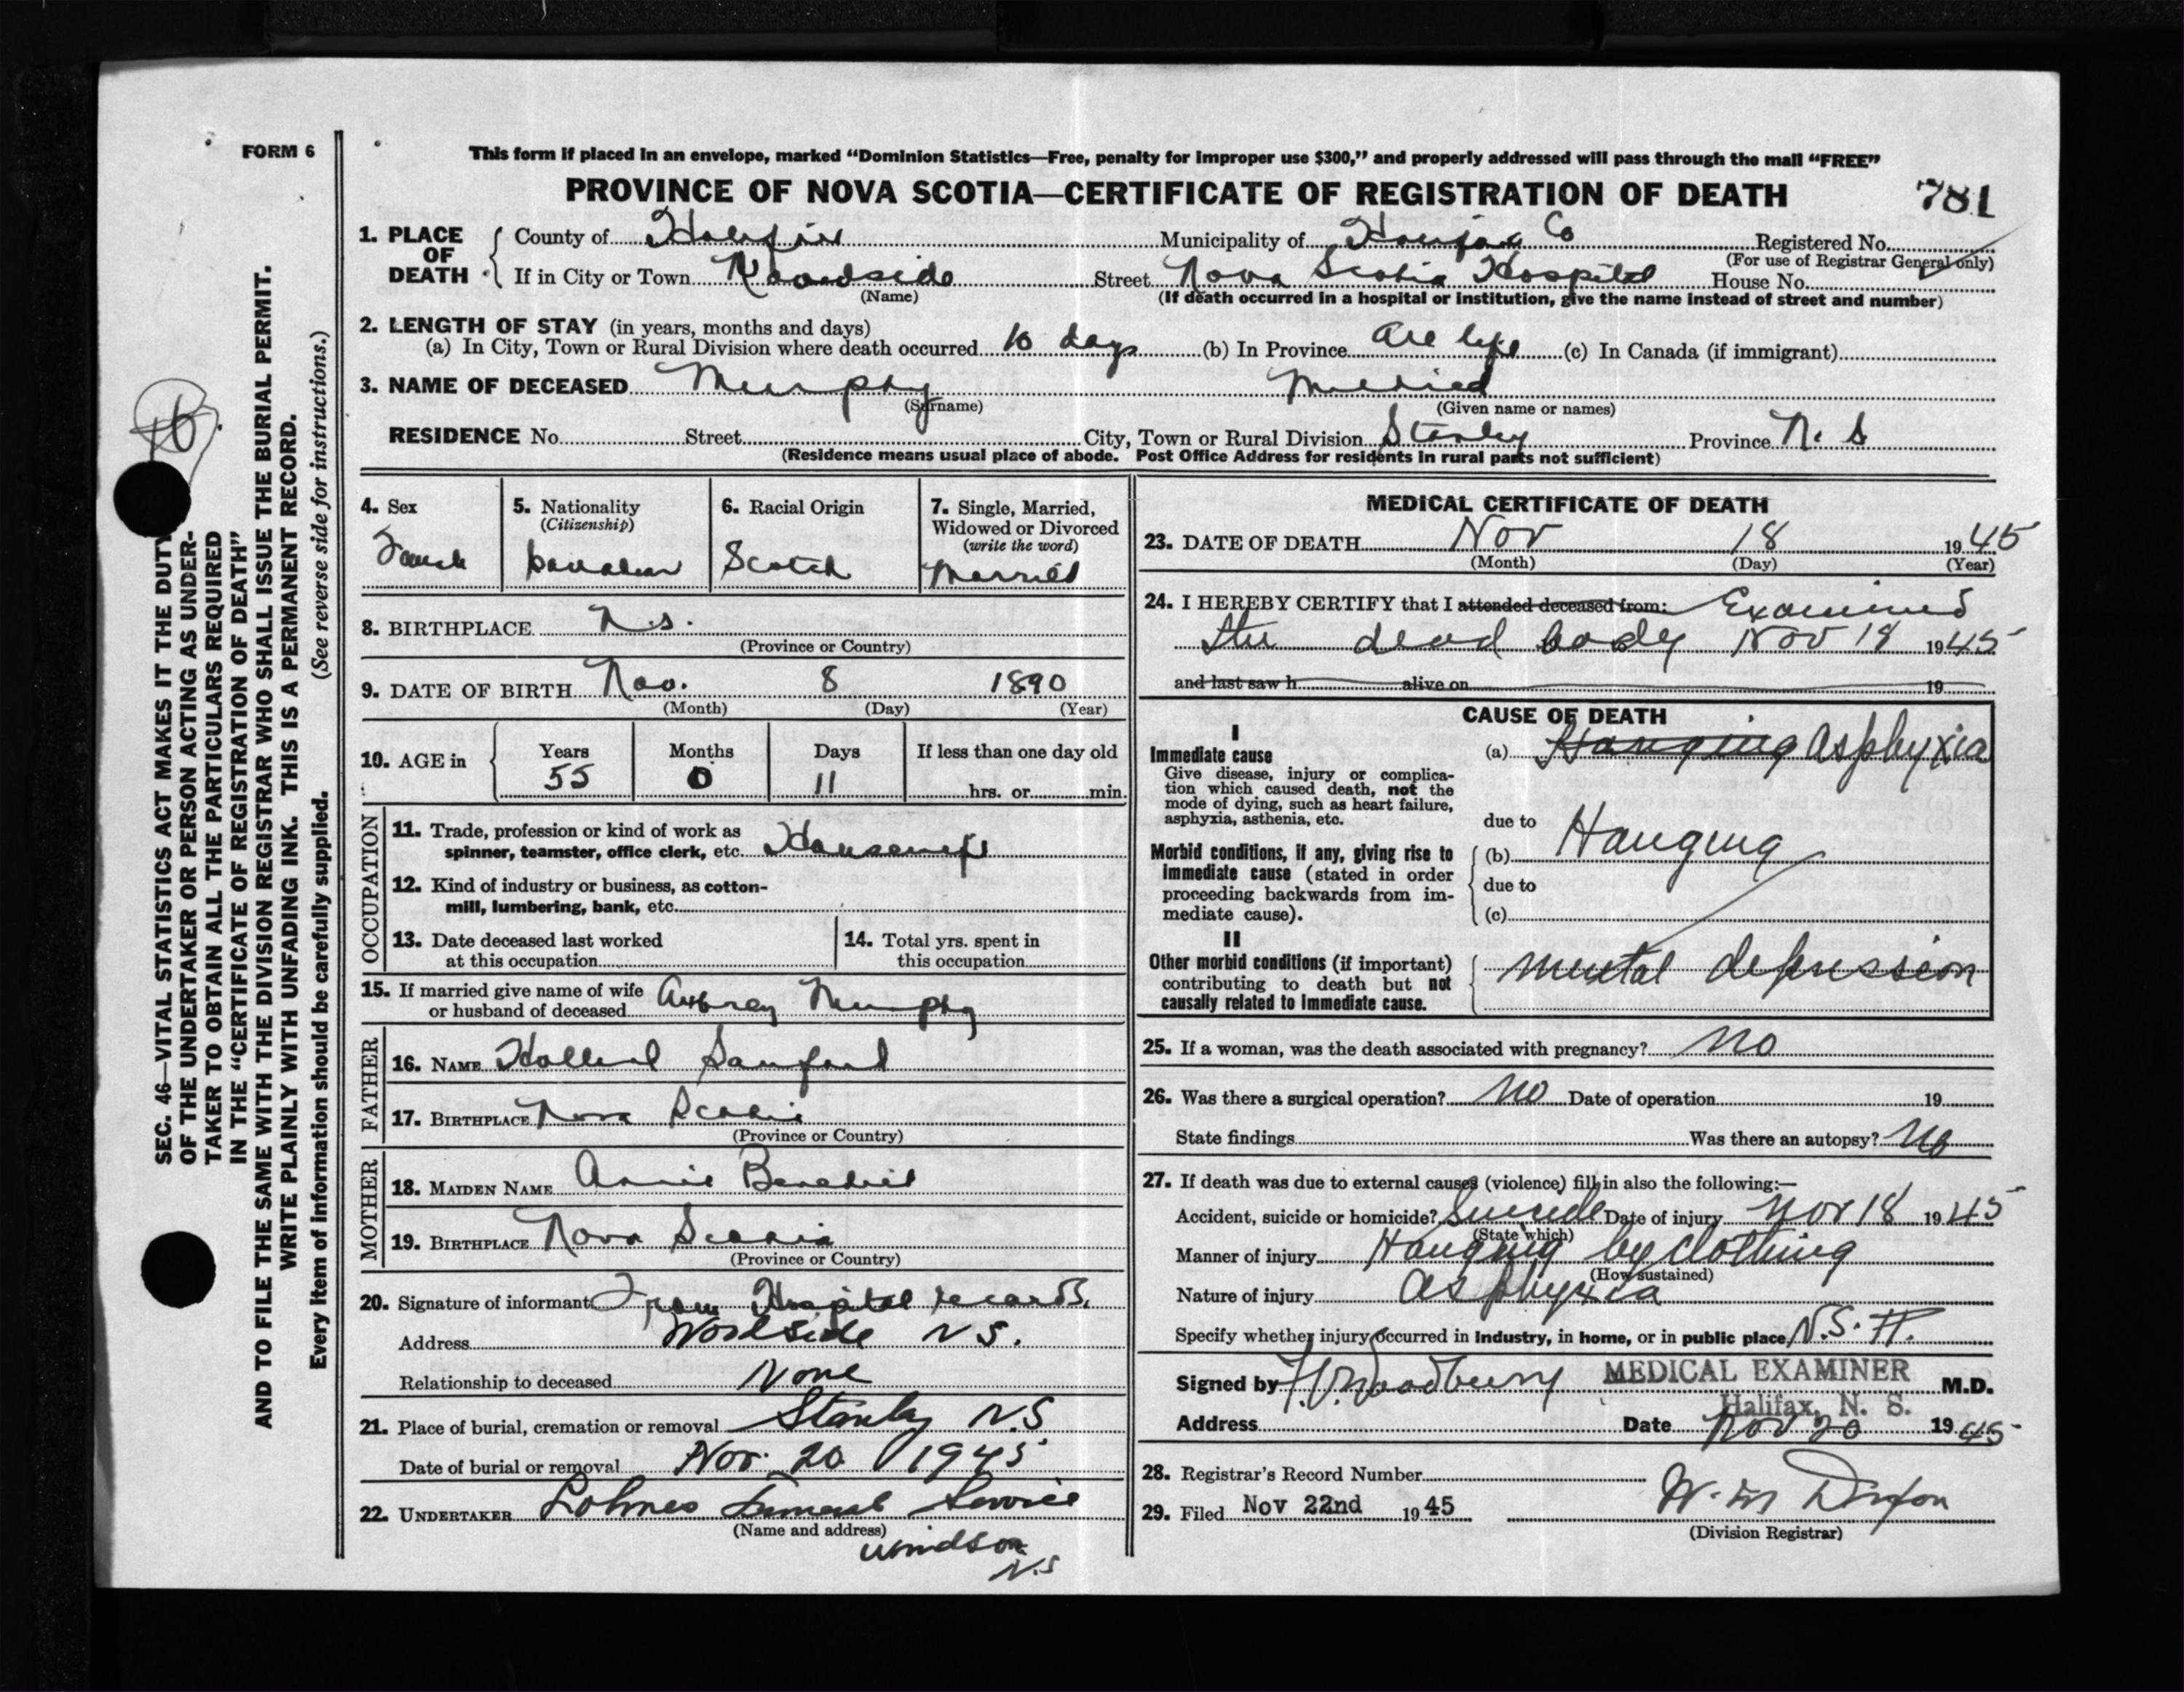 FORM 6
This form if placed in an envelope, marked “Dominion Statistics—Free, penalty for improper use $300,” and properly addressed will pass through the mail “FREE”
PROVINCE OF NOVA SCOTIA—CERTIFICATE OF REGISTRATION OF DEATH 781
1. PLACE OF DEATH County of Halifax Municipality of Halifax Co Registered No.
(For use of Registrar General only)
If in City or Town Woodside Street Nova Scotia Hospital House No.
(Name) (If death occurred in a hospital or institution, give the name instead of street and number)
2. LENGTH OF STAY (in years, months and days)
(a) In City, Town or Rural Division where death occurred 10 days (b) In Province All life (c) In Canada (if immigrant)
3. NAME OF DECEASED Murphy Mildred
(Surname) (Given name or names)
RESIDENCE No. Street City, Town or Rural Division Stanley Province N. S
(Residence means usual place of abode. Post Office Address for residents in rural parts not sufficient)
4. Sex Female
5. Nationality (Citizenship) Canadian
6. Racial Origin Scotch
7. Single, Married, Widowed or Divorced (write the word) Married
8. BIRTHPLACE N.S.
(Province or Country)
9. DATE OF BIRTH Nov. 8 1890
(Month) (Day) (Year)
10. AGE in Years 55 Months 0 Days 11 If less than one day old hrs. or min.
OCCUPATION
11. Trade, profession or kind of work as
spinner, teamster, office clerk, etc. Housewife
12. Kind of industry or business, as cotton-
mill, lumbering, bank, etc.
13. Date deceased last worked
at this occupation
14. Total yrs. spent in
this occupation
15. If married give name of wife
or husband of deceased Aubrey Murphy
FATHER
16. NAME Sanford
17. BIRTHPLACE Nova Scotia
(Province or Country)
MOTHER
18. MAIDEN NAME Annie Benedict
19. BIRTHPLACE Nova Scotia
(Province or Country)
20. Signature of informant From Hospital records.
Address Woodside N S.
Relationship to deceased None
21. Place of burial, cremation or removal Stanley N.S
Date of burial or removal Nov. 20 1945
22. UNDERTAKER Lohnes Funeral Service
(Name and address)
Windsor
N.S
MEDICAL CERTIFICATE OF DEATH
23. DATE OF DEATH Nov 18 1945
(Month) (Day) (Year)
24. I HEREBY CERTIFY that I attended deceased from: Examined
the dead body Nov 18 1945
and last saw h alive on 19
CAUSE OF DEATH
I
Immediate cause (a) Hanging Asphyxia
Give disease, injury or complica-
tion which caused death, not the
mode of dying, such as heart failure,
asphyxia, asthenia, etc.
due to
Morbid conditions, if any, giving rise to (b) Hanging
immediate cause (stated in order due to
proceeding backwards from im-
mediate cause). (c)
II
Other morbid conditions (if important) mental depression
contributing to death but not
causally related to immediate cause.
25. If a woman, was the death associated with pregnancy? no
26. Was there a surgical operation? no Date of operation 19
State findings Was there an autopsy? no
27. If death was due to external causes (violence) fill in also the following:—
Accident, suicide or homicide? Suicide Date of injury Nov 18 1945
(State which)
Manner of injury Hanging by clothing
(How sustained)
Nature of injury Asphyxia
Specify whether injury occurred in industry, in home, or in public place N.S.H.
Signed by Woodbury MEDICAL EXAMINER M.D.
Halifax, N. S.
Address Date Nov 20 1945
28. Registrar's Record Number
29. Filed Nov 22nd 1945
(Division Registrar)
SEC. 46—VITAL STATISTICS ACT MAKES IT THE DUTY
OF THE UNDERTAKER OR PERSON ACTING AS UNDER-
TAKER TO OBTAIN ALL THE PARTICULARS REQUIRED
IN THE “CERTIFICATE OF REGISTRATION OF DEATH”
AND TO FILE THE SAME WITH THE DIVISION REGISTRAR WHO SHALL ISSUE THE BURIAL PERMIT.
WRITE PLAINLY WITH UNFADING INK. THIS IS A PERMANENT RECORD.
Every item of information should be carefully supplied. (See reverse side for instructions.)